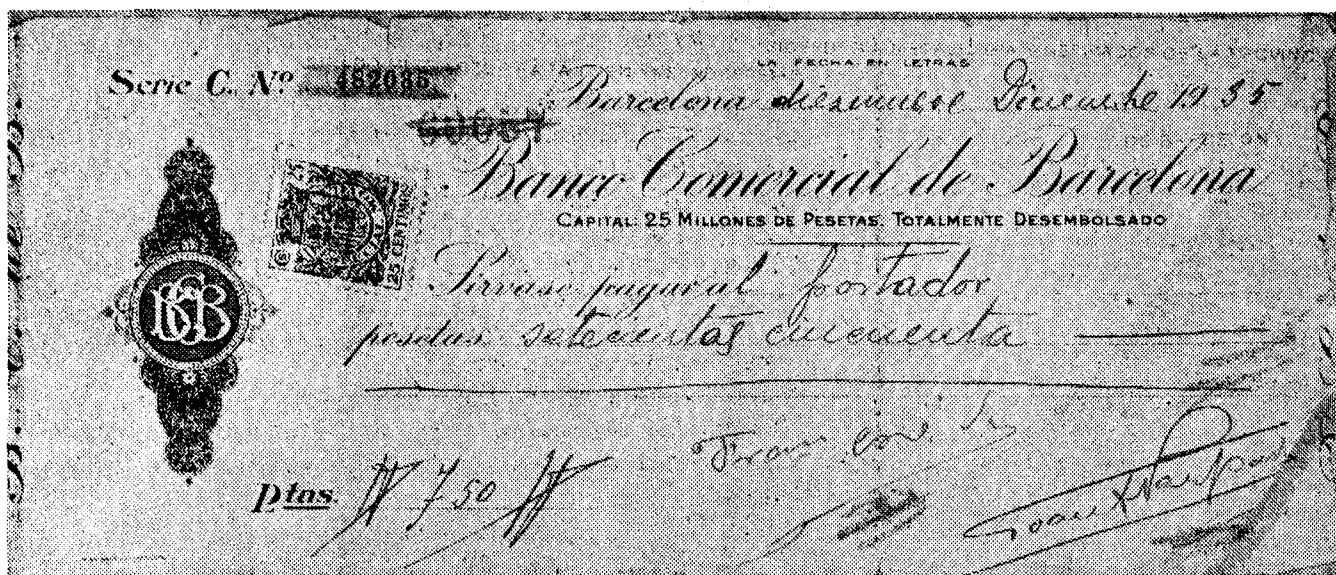 LA FECHA EN LETRAS
Serie C. Nº 482036
Barcelona diezinueve Diciembre 1935
Banco Comercial de Barcelona
CAPITAL: 25 MILLONES DE PESETAS. TOTALMENTE DESEMBOLSADO
25 CENTIMOS
BCB
Sirvase pagar al portador
pesetas setecientas cincuenta
ptas. # 750 #